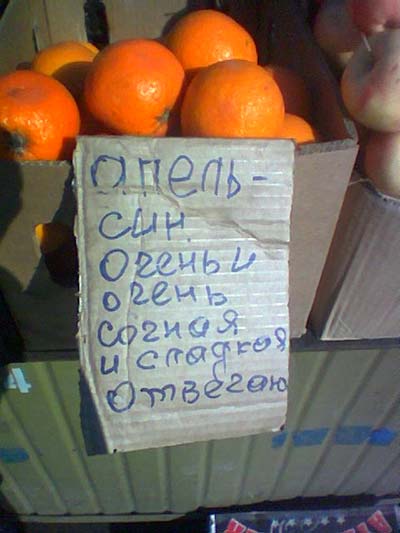 апель-
син.
Очень и
очень
сочная
и сладкая
Отвечаю